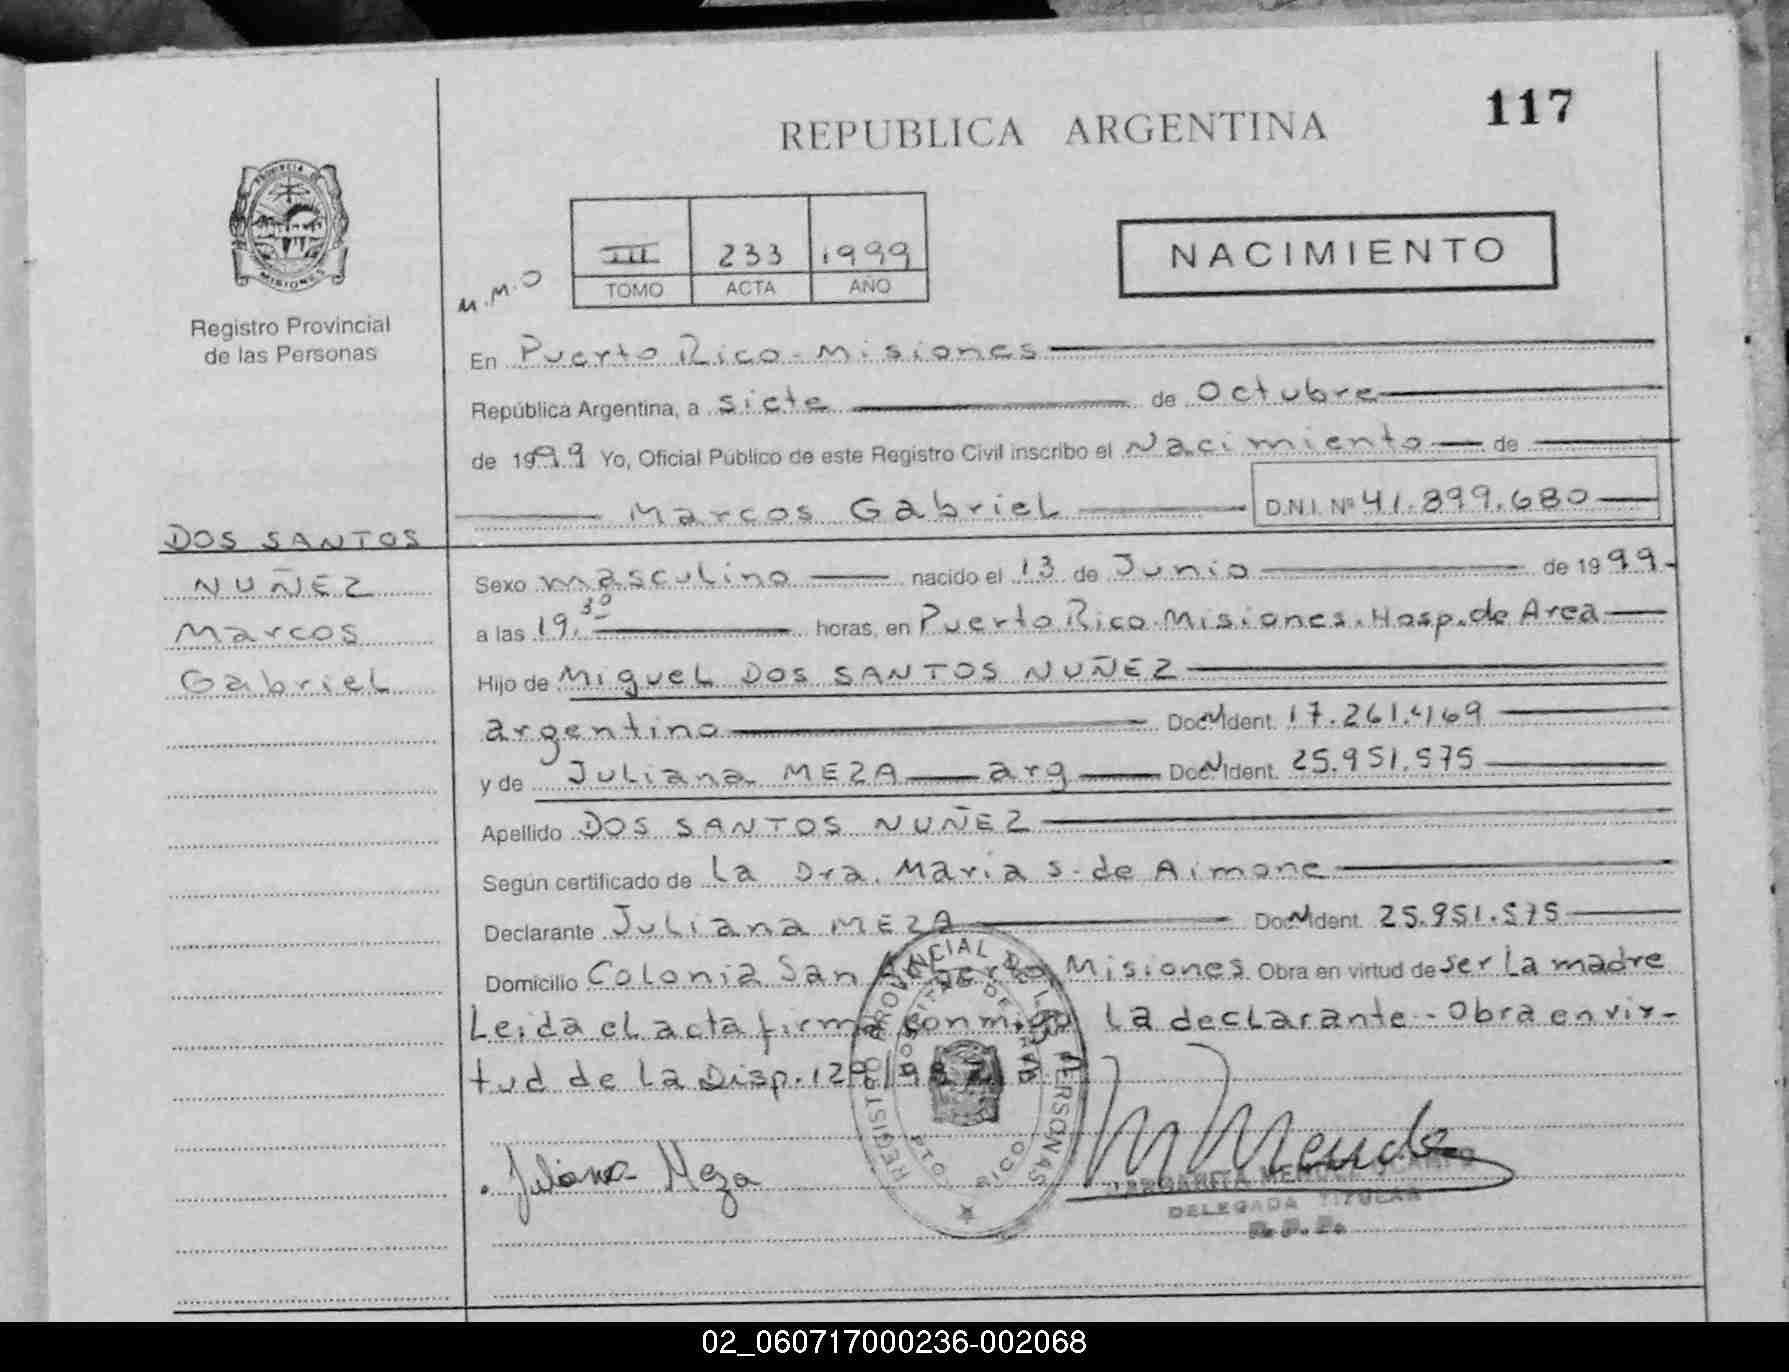 117
REPUBLICA ARGENTINA
PROVINCIA DE
MISIONES
Registro Provincial
de las Personas
M.M.O
III 233 1999
TOMO ACTA AÑO
NACIMIENTO
En Puerto Rico - Misiones
República Argentina, a siete de Octubre
de 1999 Yo, Oficial Público de este Registro Civil inscribo el Nacimiento de
Marcos Gabriel D.N.I. Nº 41.899.680
DOS SANTOS
NUÑEZ
Marcos
Gabriel
Sexo masculino nacido el 13 de Junio de 1999-
a las 19,30 horas, en Puerto Rico. Misiones. Hosp. de Area
Hijo de Miguel DOS SANTOS NUÑEZ
argentino Doc N Ident. 17.261.469
y de Juliana MEZA arg Doc N Ident. 25.951.575
Apellido DOS SANTOS NUÑEZ
Según certificado de La Dra. Maria S. de Aimone
Declarante Juliana MEZA Doc N Ident. 25.951.575
Domicilio Colonia San Misiones. Obra en virtud de ser La madre
Leida el acta firma conmigo La declarante - Obra en vir-
tud de La Disp. 129/
REGISTRO PROVINCIAL DE LAS PERSONAS
PTO RICO
Juliana Meza
M Mendez
MARGARITA MENDEZ OCAMPO
DELEGADA TITULAR
R. P. P.
02_060717000236-002068